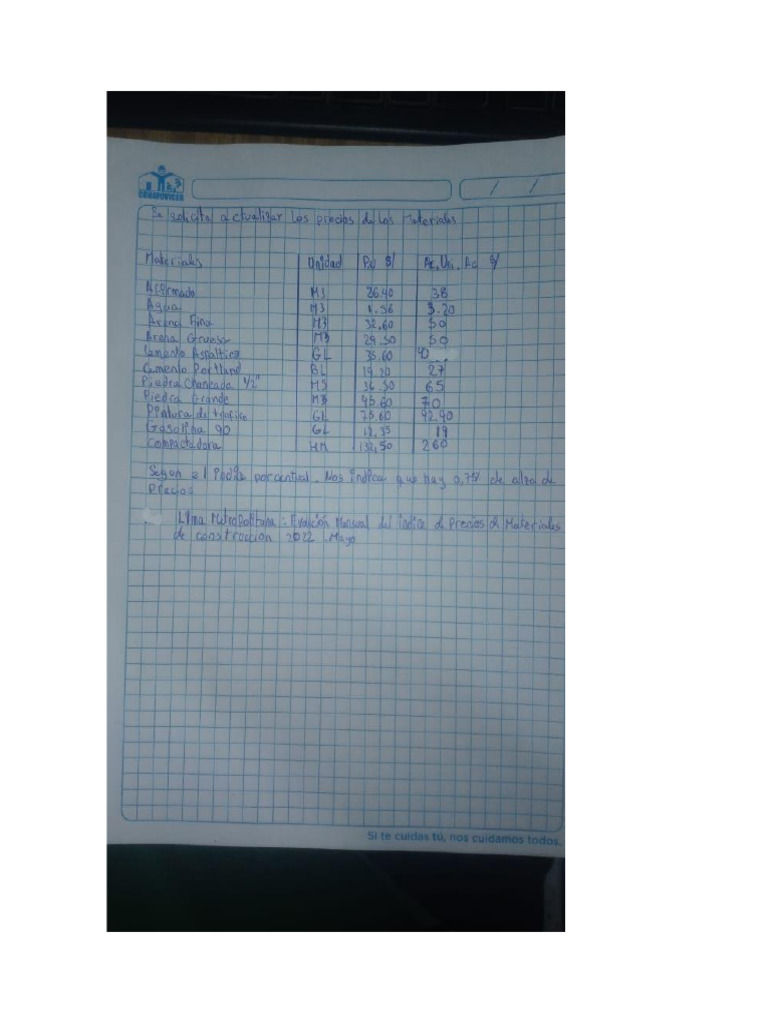 CONAFOVICER
/ /
Se solicita actualizar los precios de los Materiales
Materiales Unidad P.U S/ Ac S/
M3 26.40 38
Agua M3 3.20
Arena Fina M3 32.60 50
Arena Gruesa M3 29.50 50
Cemento Asfaltico GL 35.60 40
Cemento Portland BL 19.20 27
Piedra Chancada 1/2" M3 36.50 65
Piedra Grande M3 45.60 70
Pintura de trafico GL 75.60 92.90
Gasolina 90 GL 12.35 19
Compactadora HM 132,50 260
Segun el porcentual. Nos indica que hay de alza de
Precios
Lima Metropolitana: Mensual del indice de Precios de Materiales
de construccion 2022 . Mayo
Si te cuidas tú, nos cuidamos todos.